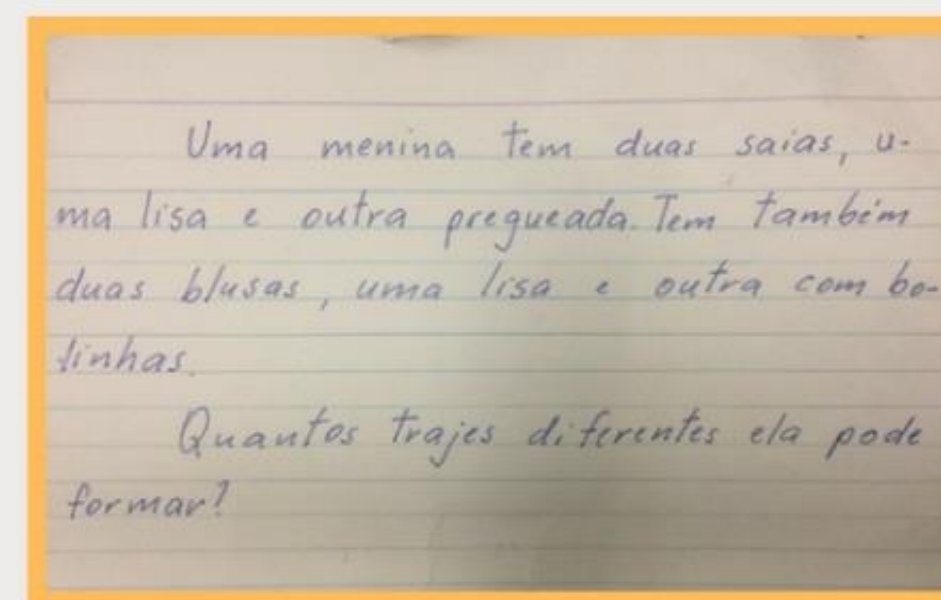 Uma menina tem duas saias, u-
ma lisa e outra pregueada. Tem também
duas blusas, uma lisa e outra com bo-
linhas.
Quantos trajes diferentes ela pode
formar?